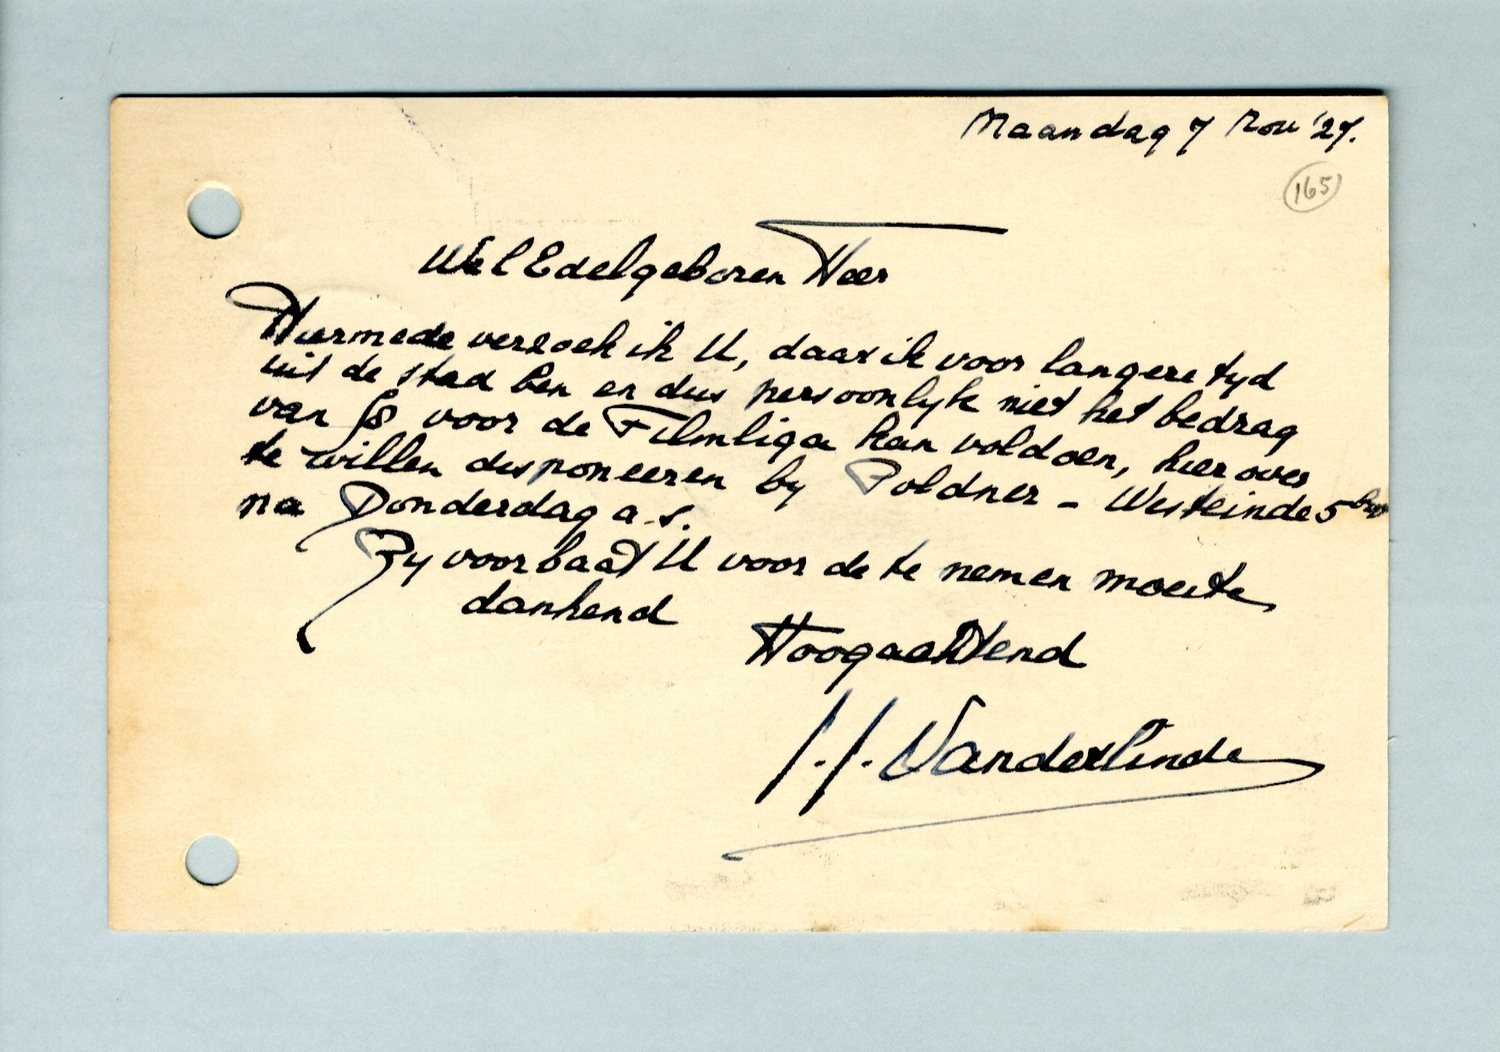 Maandag 7 Nov '27.
165
WelEdelgeboren Heer
Hiermede verzoek ik U, daar ik voor langere tyd
uit de stad ben en dus persoonlyk niet het bedrag
van voor de Filmliga kan voldoen, hier over
te willen disponeeren by Poldner - Westeinde 5
na Donderdag a.s.
By voorbaat U voor de te nemen moeite
dankend
Hoogachtend
J. J. Vanderlinde